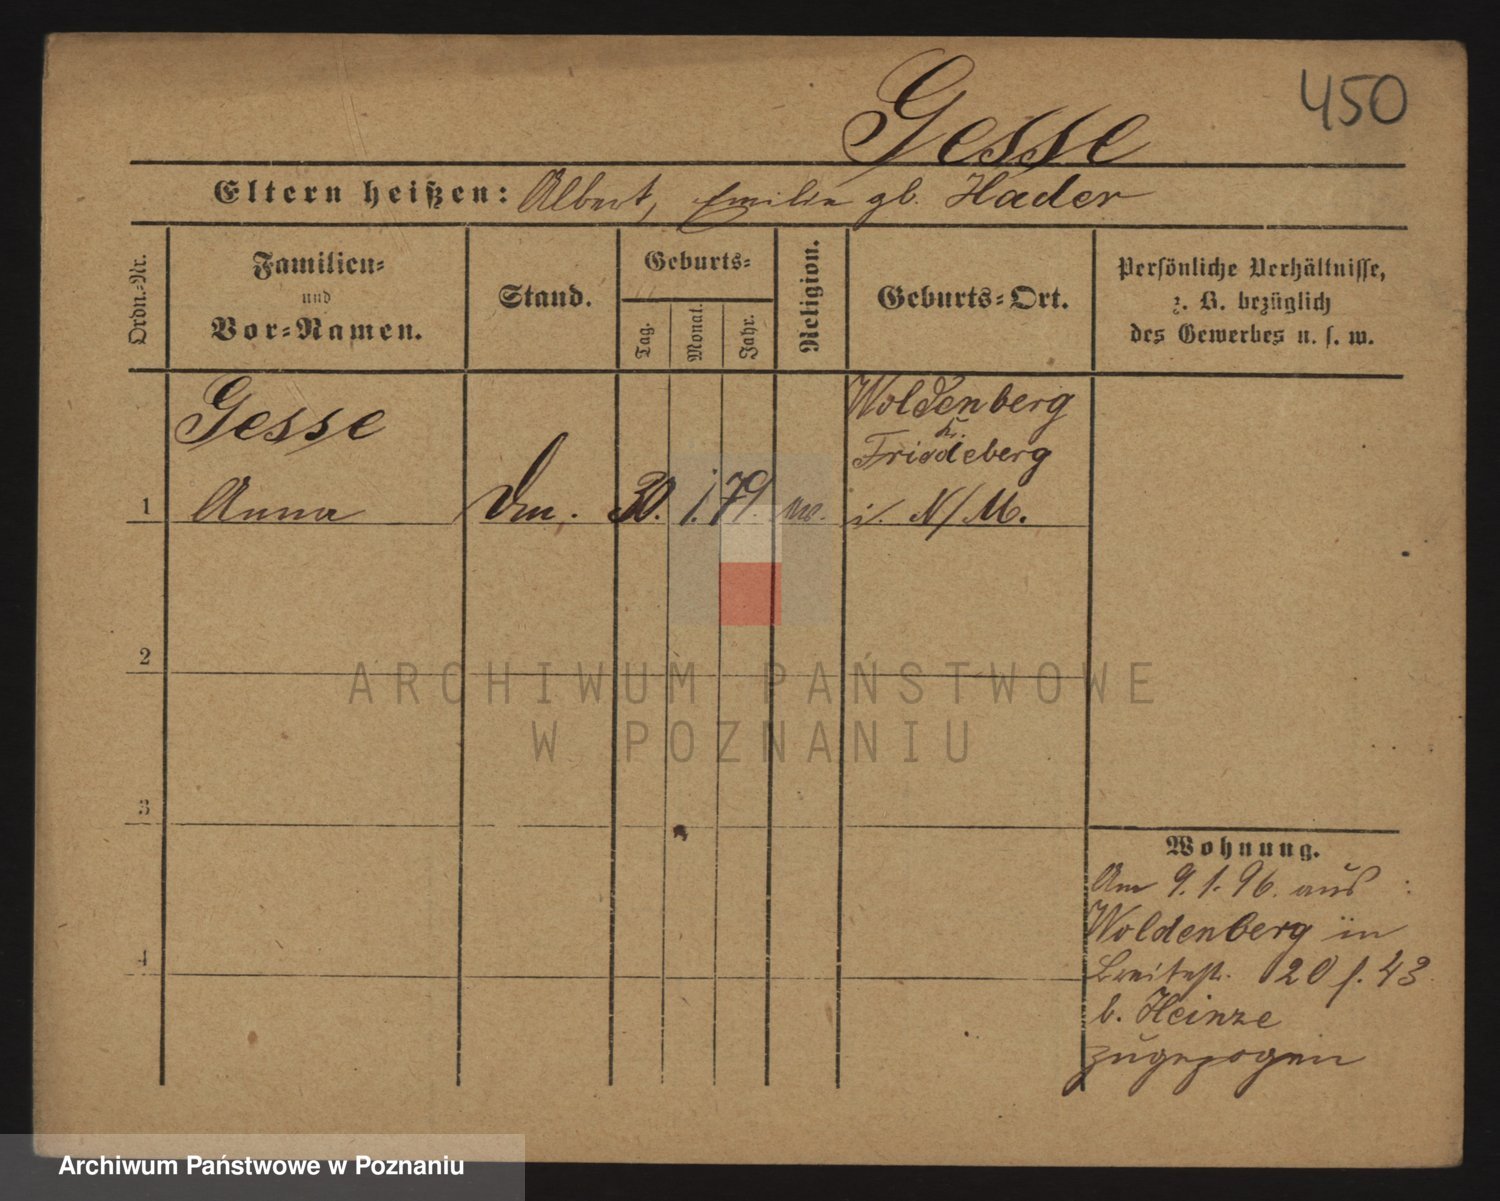 450
Gesse
Eltern heißen: Albert, Emilie gb. Hader
Ordn.-Nr.
Familien-
und
Vor-Namen.
Stand.
Geburts-
Tag.
Monat.
Jahr.
Religion.
Geburts-Ort.
Persönliche Verhältnisse,
z. B. bezüglich
des Gewerbes u. s. w.
Gesse
Anna
1
30. 1. 79.
Woldenberg
Kr.
Friedeberg
i/. N/M.
2
3
4
Wohnung.
Am 9.1.96. aus
Woldenberg in
Breitestr. 20 f. 43
b. Heinze
zugezogen
ARCHIWUM PAŃSTWOWE
W POZNANIU
Archiwum Państwowe w Poznaniu